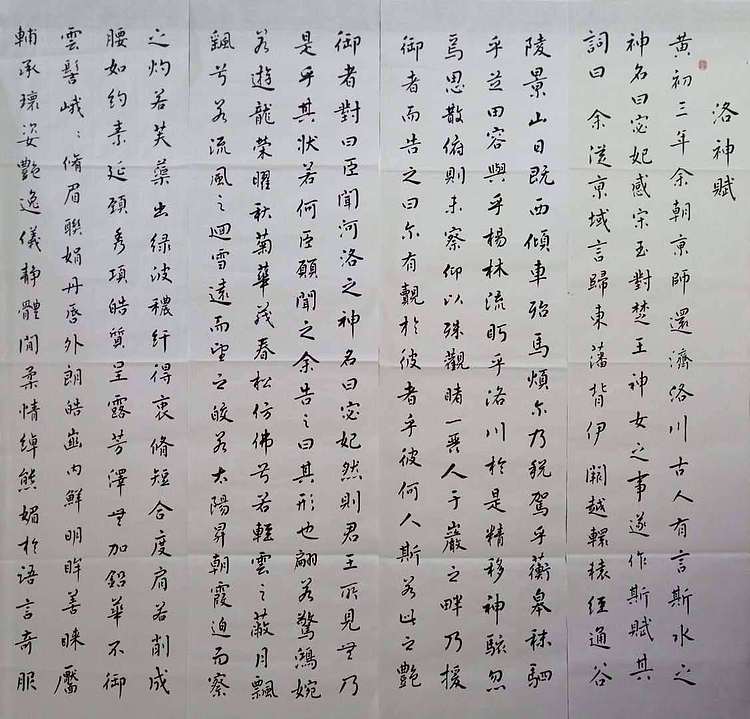 洛神賦
黃初三年余朝京師還濟洛川古人有言斯水之
神名曰宓妃感宋玉對楚王神女之事遂作斯賦其
詞曰 余從京域言歸東藩背伊闕越轘轅經通谷
陵景山日既西傾車殆馬煩尔乃稅駕乎蘅皋秣駟
乎芝田容與乎楊林流眄乎洛川於是精移神駭忽
焉思散俯則未察仰以殊觀睹一麗人于巖之畔乃援
御者而告之曰尔有覿於彼者乎彼何人斯若此之艷
御者對曰臣聞河洛之神名曰宓妃然則君王所見無乃
是乎其狀若何臣願聞之余告之曰其形也翩若驚鴻婉
若遊龍榮曜秋菊華茂春松仿佛兮若輕雲之蔽月飄
飖兮若流風之迴雪遠而望之皎若太陽昇朝霞迫而察
之灼若芙蕖出綠波穠纖得衷脩短合度肩若削成
腰如約素延頸秀項皓質呈露芳澤無加鉛華不御
雲髻峨〻脩眉聯娟丹唇外朗皓齒內鮮明眸善睞靨
輔承瓌姿艷逸儀靜體閒柔情綽態媚於語言奇服